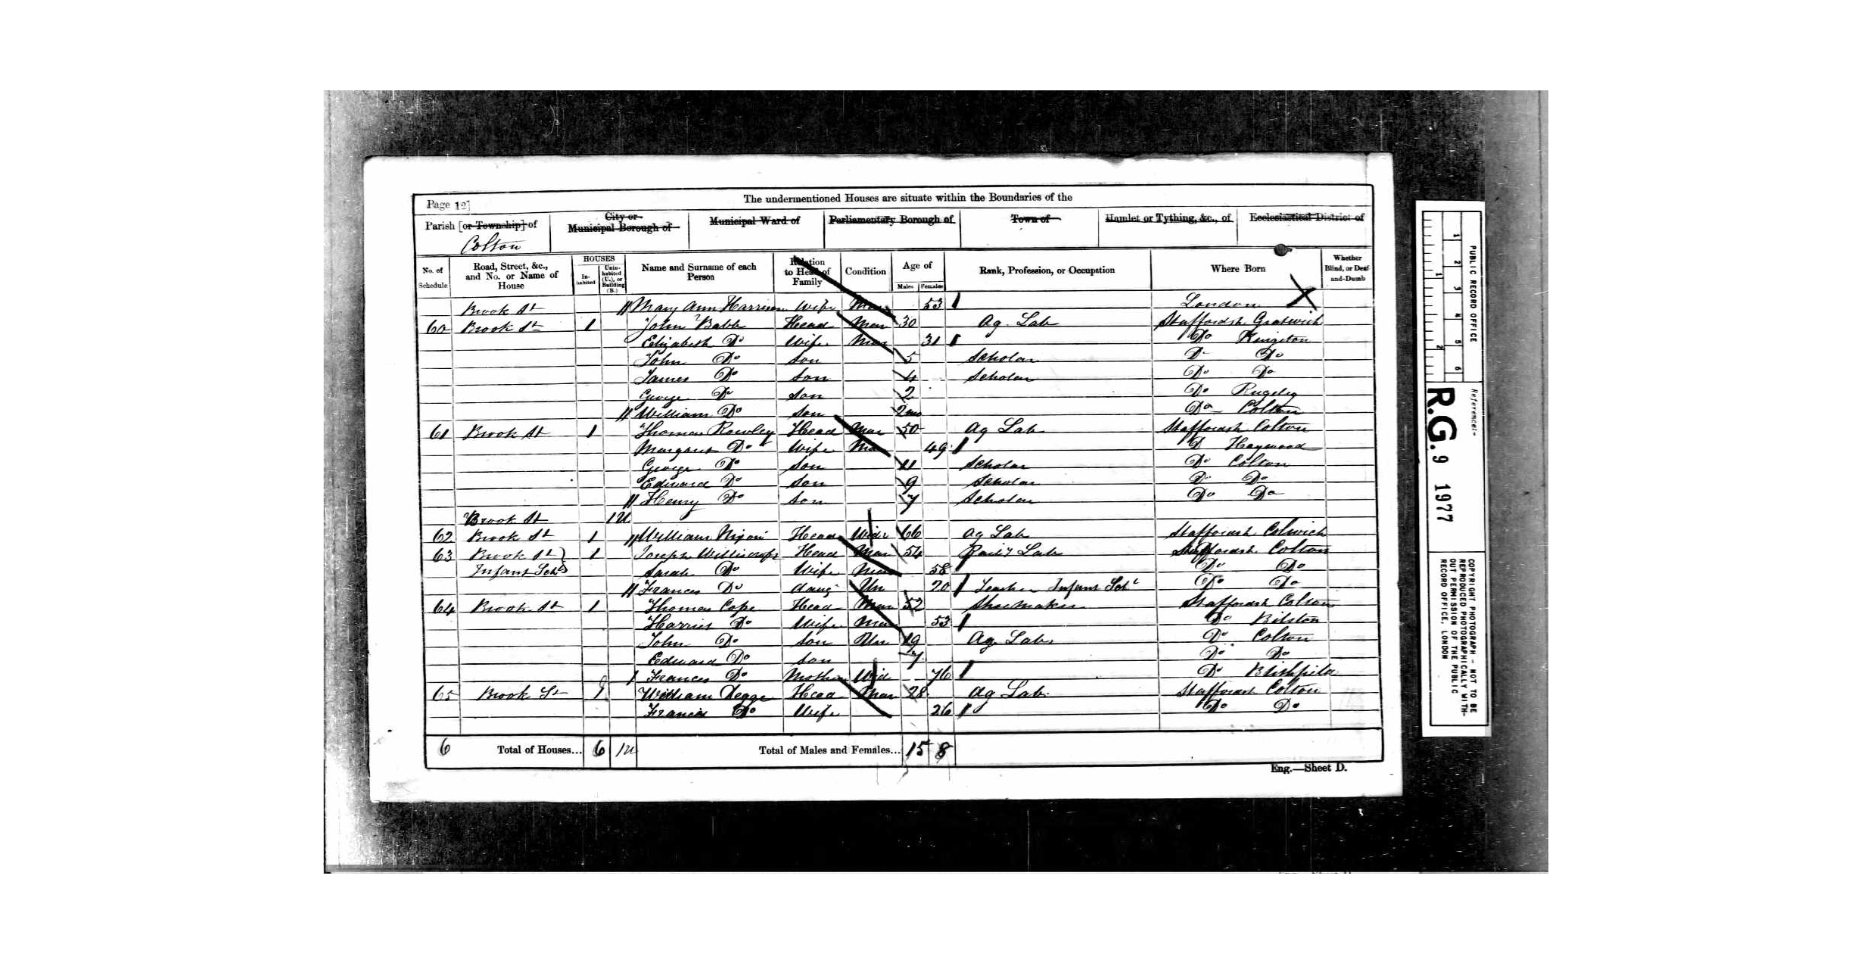 The undermentioned Houses are situate within the Boundaries of the
Page 12]
Parish [or Township] of
Colton
City or Municipal Borough of
Municipal Ward of
Parliamentary Borough of
Town of
Hamlet or Tything, &c., of
Ecclesiastical District of
No. of Schedule
Road, Street, &c., and No. or Name of House
HOUSES
In-habited
Unin-habited (U.), or Building (B.)
Name and Surname of each Person
Relation to Head of Family
Condition
Age of
Males
Females
Rank, Profession, or Occupation
Where Born
Whether Blind, or Deaf-and-Dumb
Brook St Mary Ann Harrison Wife Mar 53 London
60 Brook St 1 John Babb Head Mar 30 Ag. Lab Staffordsh Gratwich
Elizabeth Do Wife Mar 31 Do Kingston
John Do Son 5 Scholar Do Do
James Do Son 4 Scholar Do Do
George Do Son 2 Do Rugeley
William Do Son 2 mo Do Colton
61 Brook St 1 Thomas Rowley Head Mar 50 Ag Lab Staffordsh Colton
Margaret Do Wife Mar 49 Do Haywood
George Do Son 11 Scholar Do Colton
Edward Do Son 9 Scholar Do Do
Henry Do Son 7 Scholar Do Do
Brook St 1U
62 Brook St 1 William Nixon Head Widr 66 Ag Lab Staffordsh Colwich
63 Brook St 1 Joseph Williscroft Head Mar 54 Rail Lab Staffordsh Colton
Infant Schl Sarah Do Wife Mar 58 Do Do
Frances Do daug Un 20 Teacher Infant Schl Do Do
64 Brook St 1 Thomas Cope Head Mar 52 Shoemaker Staffordsh Colton
Harriet Do Wife Mar 53 Do Bilston
John Do Son Un 19 Ag Lab Do Colton
Edward Do Son 7 Do Do
Frances Do Mother Wid 76 Do Blithfield
65 Brook St 1 William Legge Head Mar 28 Ag Lab Staffordsh Colton
Frances Do Wife 26 Do Do
6 Total of Houses... 6 1U Total of Males and Females... 15 8
Eng.—Sheet D.
PUBLIC RECORD OFFICE
1 2 3 4 5 6
1 2
Reference:-
R.G. 9 1977
COPYRIGHT PHOTOGRAPH - NOT TO BE
REPRODUCED PHOTOGRAPHICALLY WITH-
OUT PERMISSION OF THE PUBLIC
RECORD OFFICE, LONDON